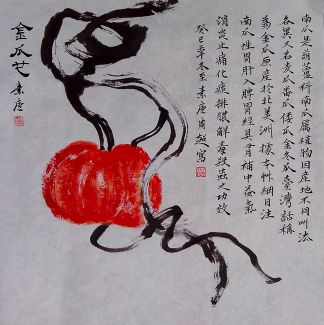 南瓜是葫蘆科南瓜屬植物因產地不同叫法
各異又名麦瓜番瓜倭瓜金冬瓜臺灣話稱
為金瓜原產於北美洲據本艸綱目注
南瓜性入脾胃經具有補中益氣
消炎止痛化痰排膿解毒殺蟲之功效
癸巳年冬至素唐寫
金瓜
素唐